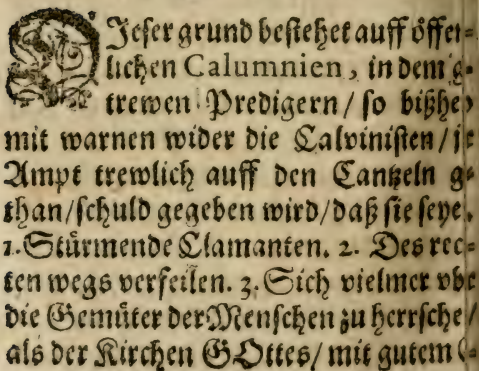 DJeser grund bestehet auff öffet=
lichen Calumnien, in dem g.
trewen Predigern / so bißhe
mit warnen wider die Calvinisten / je
Ampt trewlich auff den Cantzeln ge
than / schuld gegeben wird / daß sie seye.
1. Stürmende Clamanten. 2. Des rec=
ten wegs verfeilen. 3. Sich vielmer vbe
die Gemüter der Menschen zu herrsche /
als der Kirchen GOttes / mit gutem